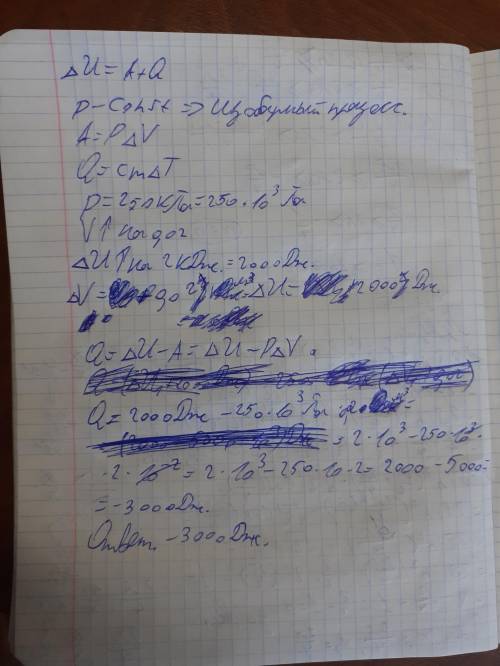 ΔU = A+Q
p - const => Изобарный процесс.
A = PΔV
Q = cmΔT
P = 250кПа = 250·10³ Па
V↑ на 
ΔU↑ на 2кДж. = 2000Дж.
ΔV = ΔU = 2000 Дж.
Q = ΔU - A = ΔU - PΔV
Q = 2000Дж - 250·10³Па ·
= 2·10³ - 250·10³·
·2·10⁻² = 2·10³ - 250·10·2 = 2000 - 5000 =
= -3000Дж.
Ответ. -3000Дж.